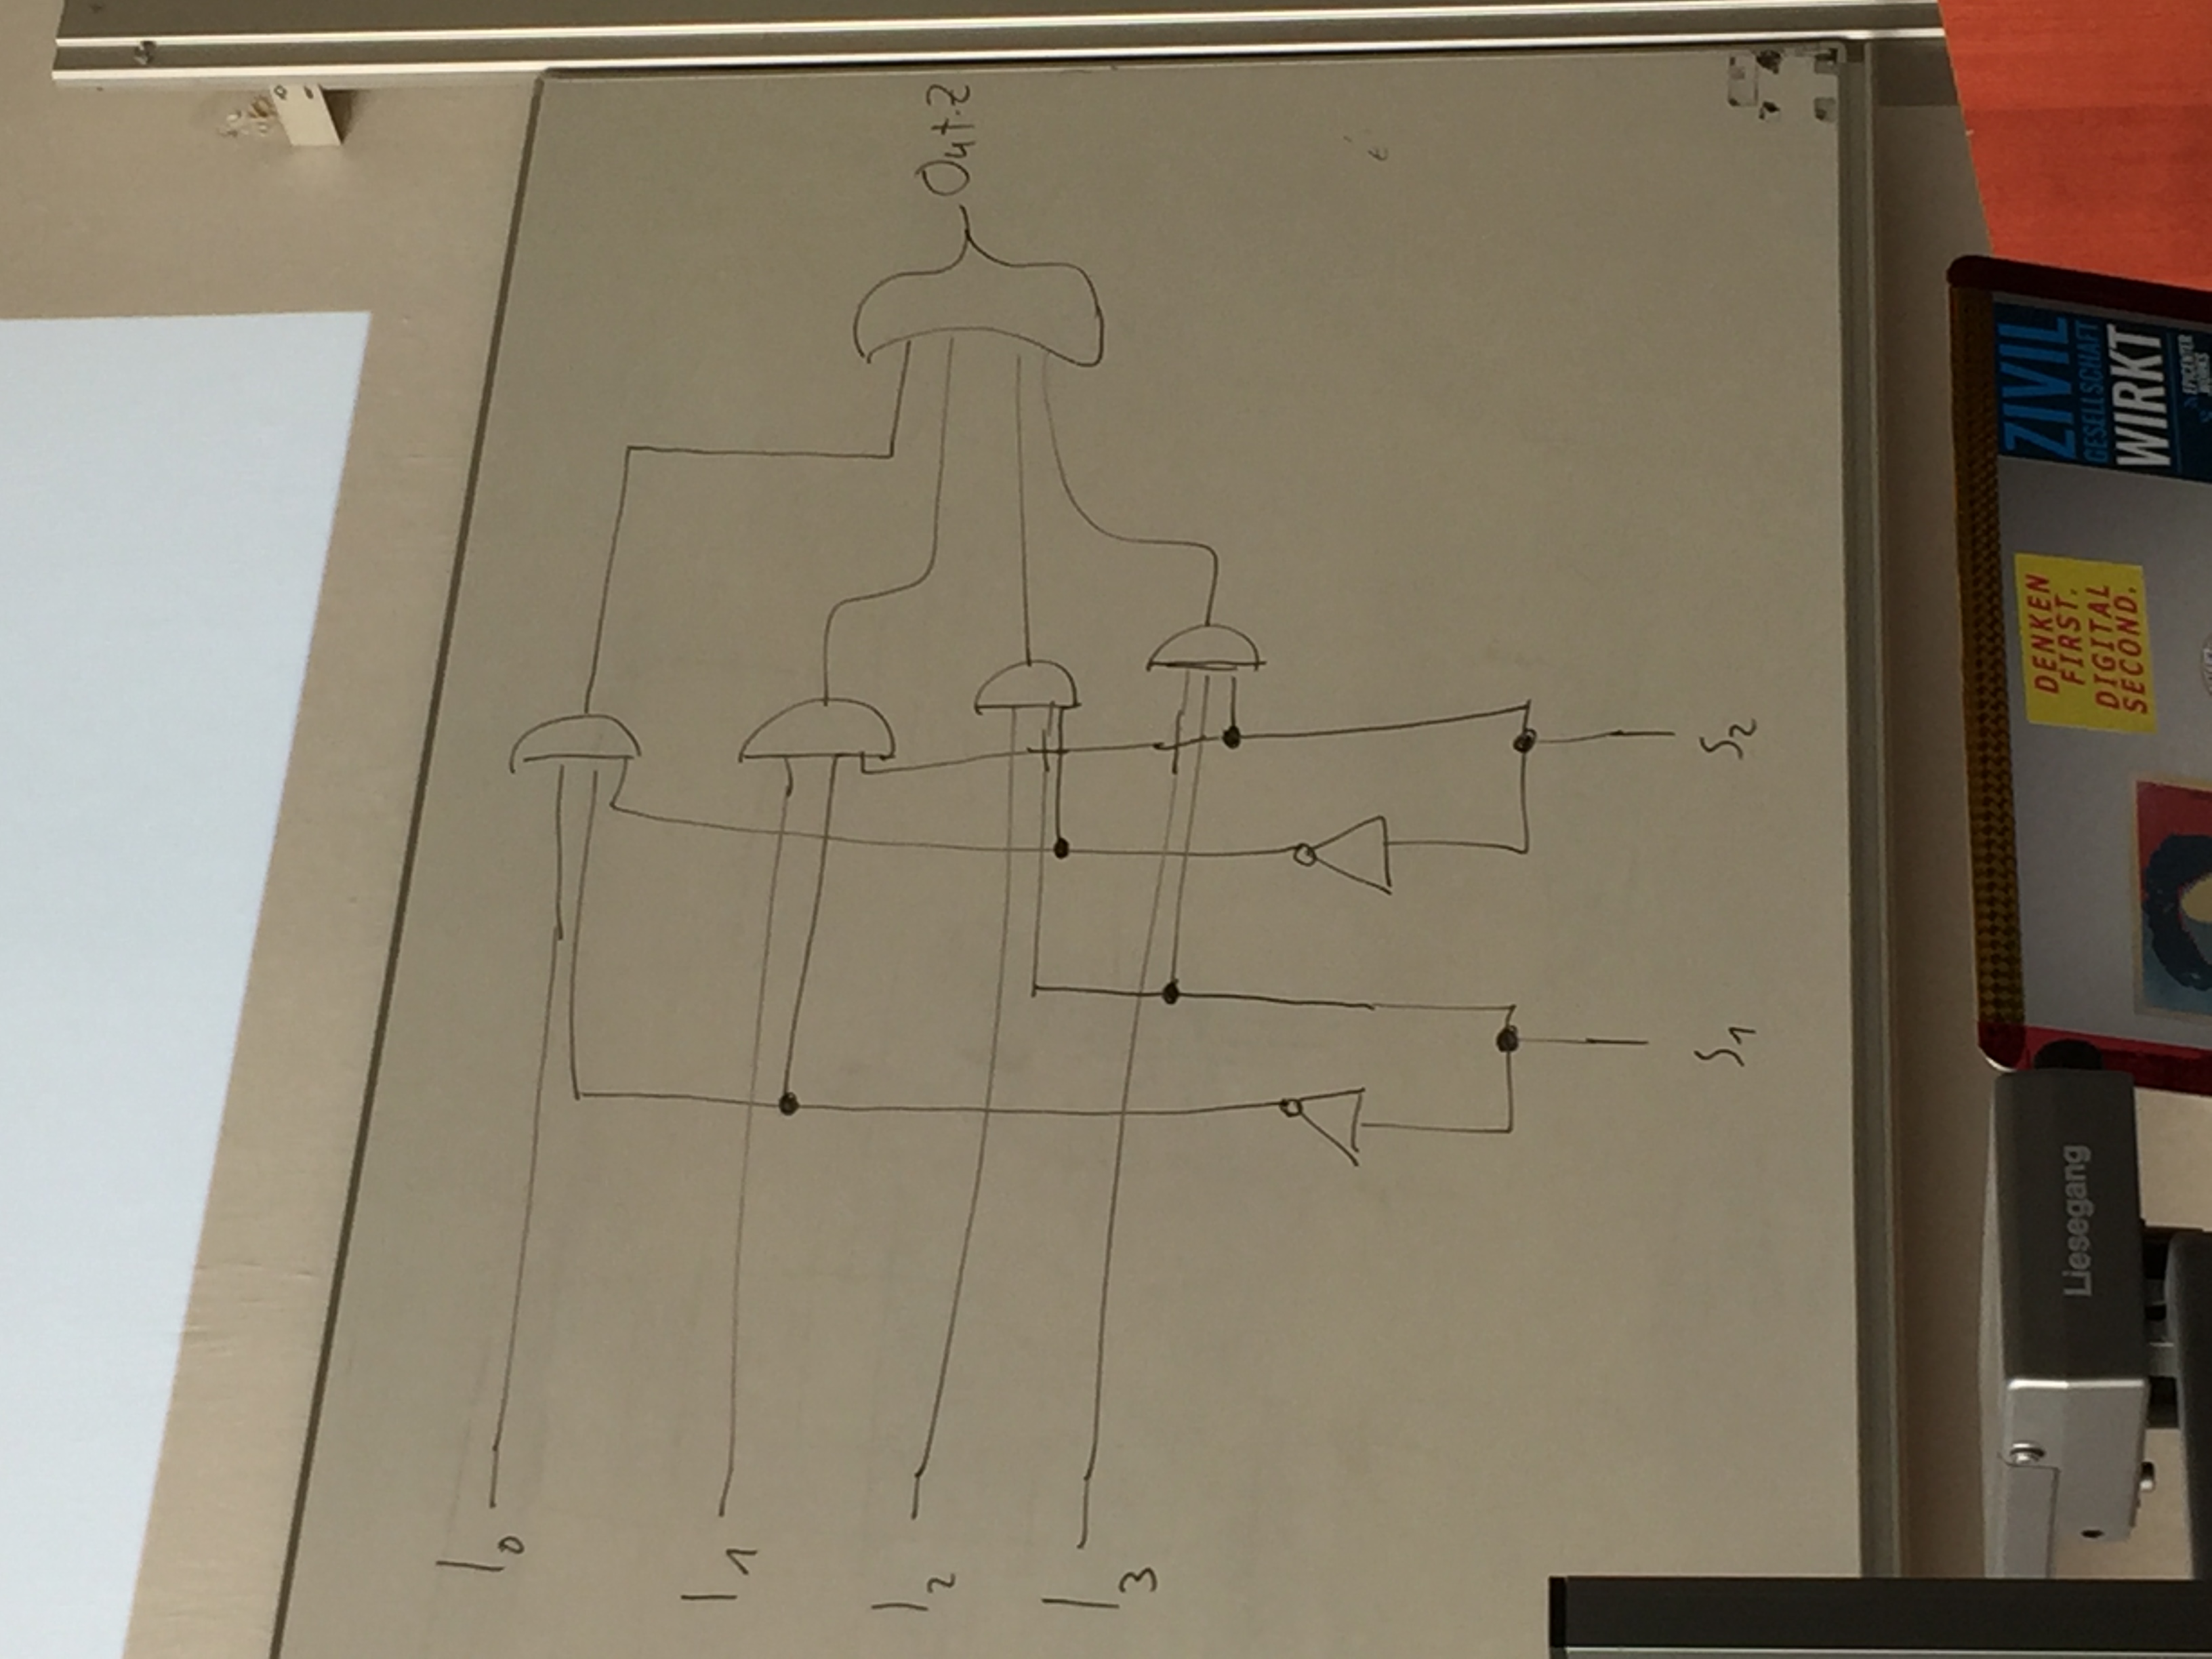 I0
I1
I2
I3
Out z
S1
S2
Liesegang
DENKEN
FIRST.
DIGITAL
SECOND.
ZIVIL
GESELLSCHAFT
WIRKT
EPICENTER
WORKS